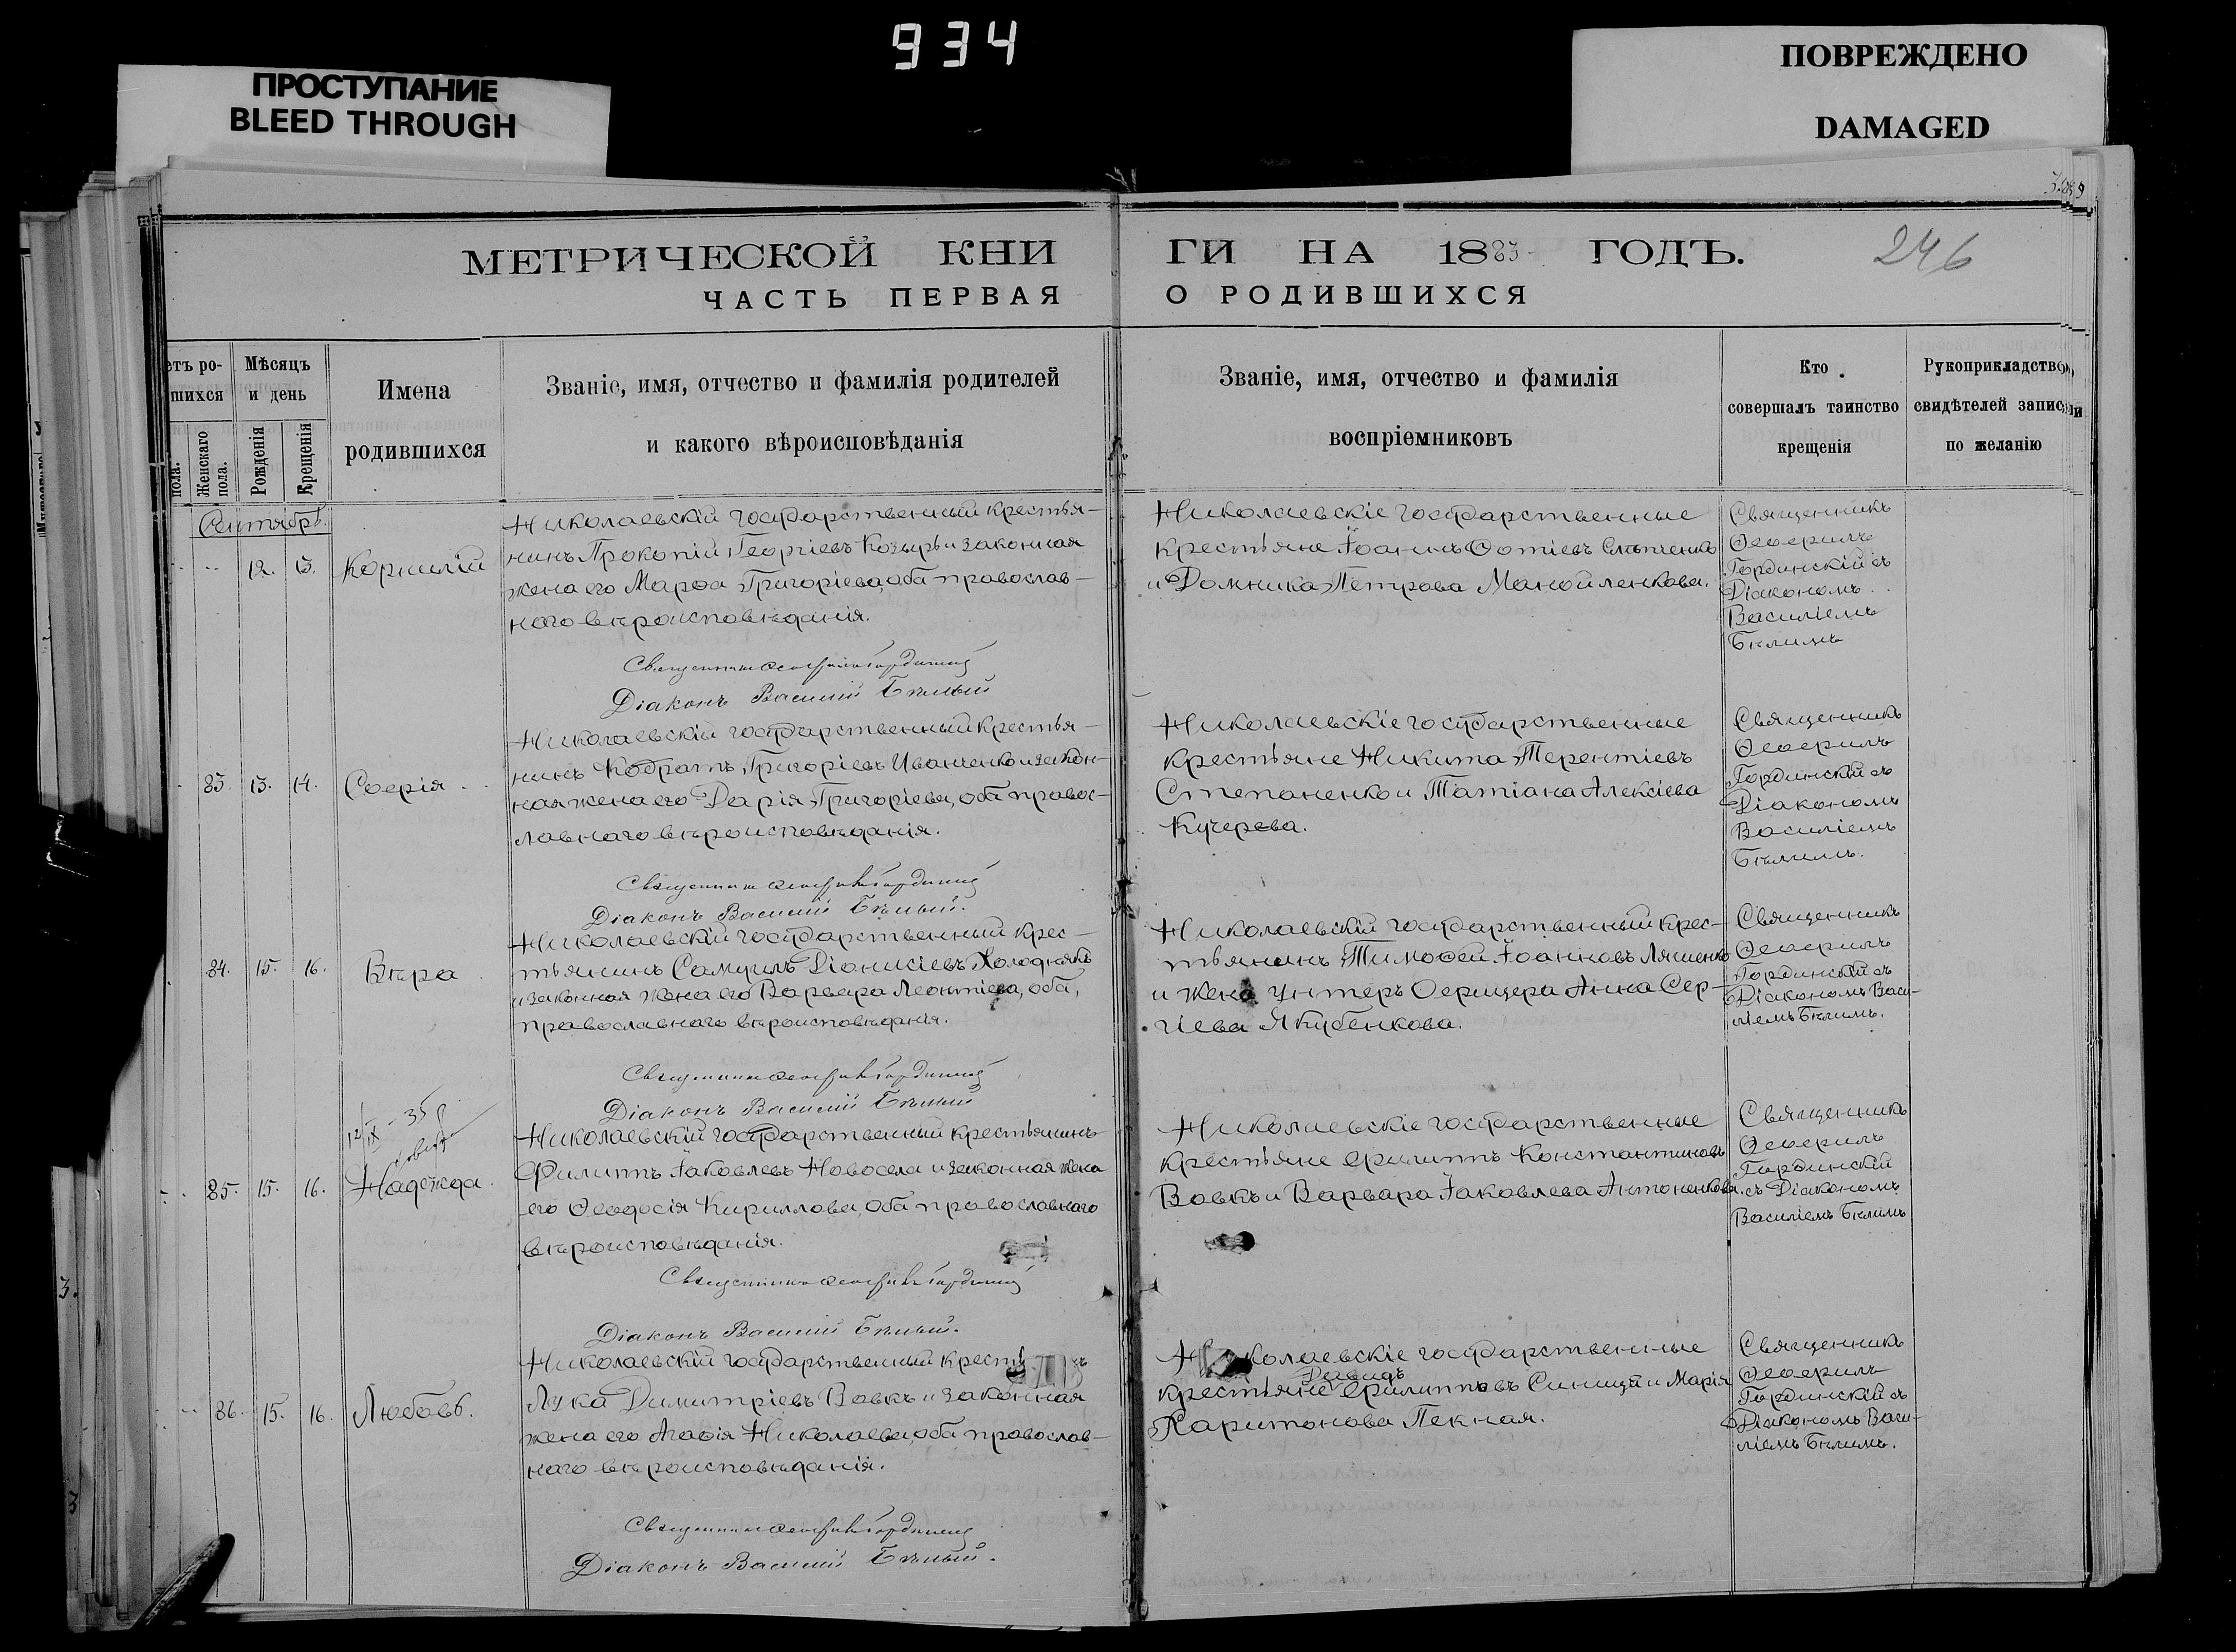 934
ПРОСТУПАНИЕ
BLEED THROUGH
ПОВРЕЖДЕНО
DAMAGED
МЕТРИЧЕСКОЙ КНИ
ЧАСТЬ ПЕРВАЯ
ГИ НА 1883 ГОДЪ.
О РОДИВШИХСЯ
246
етъ ро-
шихся
пола.
Женскаго
пола.
Мѣсяцъ
и день
Рожденія
Крещенія
Имена
родившихся
Званіе, имя, отчество и фамилія родителей
и какого вѣроисповѣданія
Званіе, имя, отчество и фамилія
воспріемниковъ
Кто
совершалъ таинство
крещенія
Рукоприкладство
свидѣтелей записи
по желанію
Сентябрь.
12. 13. Корнилій
Николаевскій государственный крестья-
нинъ Прокопій Георгіевъ Козырь и законная
жена его Марѳа Григоріева, оба православ-
наго вѣроисповѣданія.
Священникъ Ѳеофилъ Гординскій
Діаконъ Василій Бѣлый
Николаевскіе государственные
крестьяне Іоаннъ Ѳотіевъ
и Домника Петрова Манойленкова.
Священникъ
Ѳеофилъ
Гординскій съ
Діакономъ
Василіемъ
Бѣлимъ
83. 13. 14. Софія
Николаевскій государственный крестья-
нинъ Кодратъ Григоріевъ Иванченко и закон-
ная жена его Дарія Григоріева, оба правос-
лавнаго вѣроисповѣданія.
Священникъ Ѳеофилъ Гординскій
Діаконъ Василій Бѣлый.
Николаевскіе государственные
крестьяне Никита Терентіевъ
Степаненко и Татіана Алексіева
Кучерева.
Священникъ
Ѳеофилъ
Гординскій съ
Діакономъ
Василіемъ
Бѣлимъ.
84. 15. 16. Вѣра
Николаевскій государственный крес-
тьянинъ Самуилъ Діонисіевъ Холоднякъ
и законная жена его Варвара Леонтіева, оба,
православнаго вѣроисповѣданія.
Священникъ Ѳеофилъ Гординскій
Діаконъ Василій Бѣлый
Николаевскій государственный крес-
тьянинъ Тимоѳей Іоанновъ Ляшенко
и жена унтеръ Офицера Анна Сер-
гіева Якубенкова.
Священникъ
Ѳеофилъ
Гординскій съ
Діакономъ Васи-
ліемъ Бѣлимъ.
12/IX - 35
85. 15. 16. Надежда.
Николаевскій государственный крестьянинъ
Филиппъ Іаковлевъ Новосела и законная жена
его Ѳеодосія Кириллова, оба православнаго
вѣроисповѣданія.
Священникъ Ѳеофилъ Гординскій
Діаконъ Василій Бѣлый.
Николаевскіе государственные
крестьяне Филиппъ Константиновъ
Вовкъ и Варвара Іаковлева Антоненкова.
Священникъ
Ѳеофилъ
Гординскій
съ Діакономъ
Василіемъ Бѣлимъ
86. 15. 16. Любовь.
Николаевскій государственный
Лука Димитріевъ Вовкъ и законная
жена его Агаѳія Николаева, оба православ-
наго вѣроисповѣданія.
Священникъ Ѳеофилъ Гординскій
Діаконъ Василій Бѣлый.
Николаевскіе государственные
Давидъ
крестьяне Филипповъ Синица и Марія
Харитонова Пекная.
Священникъ
Ѳеофилъ
Гординскій съ
Діакономъ Васи-
ліемъ Бѣлимъ.